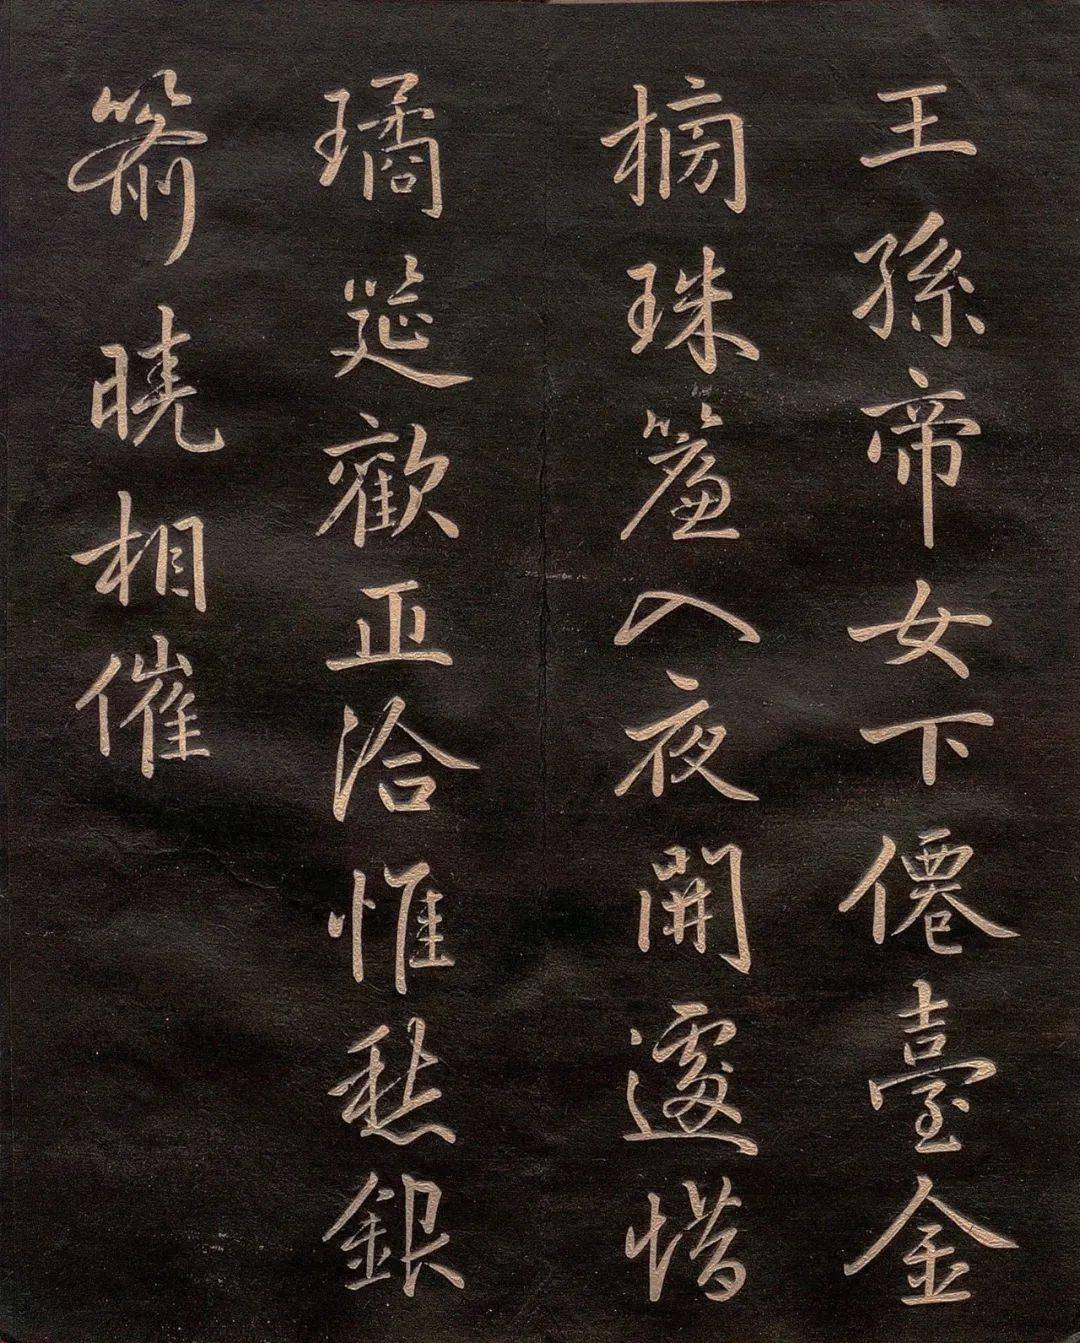 王孫帝女下僊臺金
榜珠簾入夜開遽惜
璚筵歡正洽惟愁銀
箭曉相催